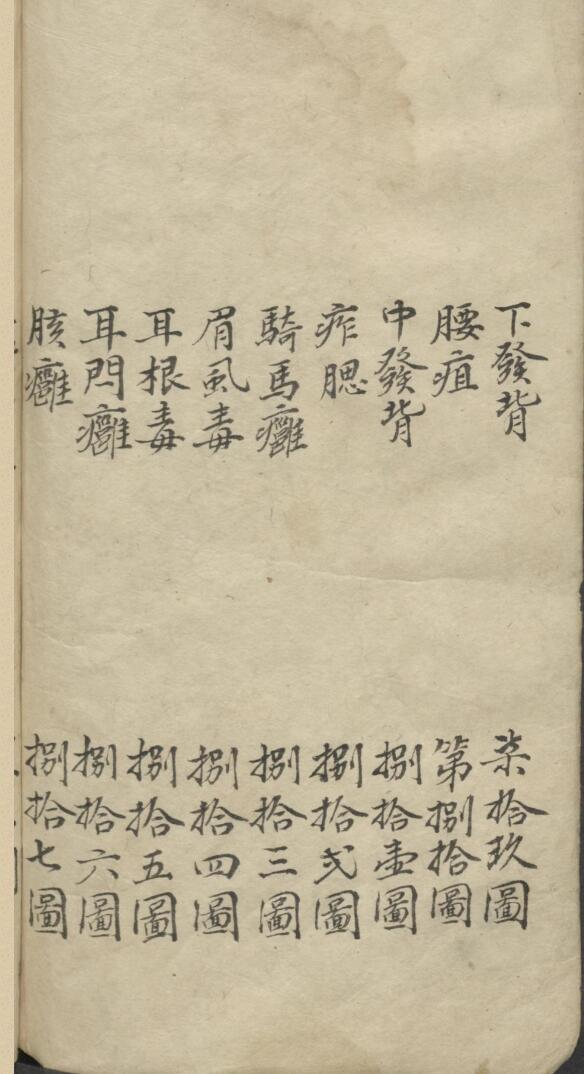 下發背 柒拾玖圖
腰疽 第捌拾圖
中發背 捌拾壺圖
痄腮 捌拾弍圖
騎馬癰 捌拾三圖
眉風毒 捌拾四圖
耳根毒 捌拾五圖
耳閃癰 捌拾六圖
胲癰 捌拾七圖